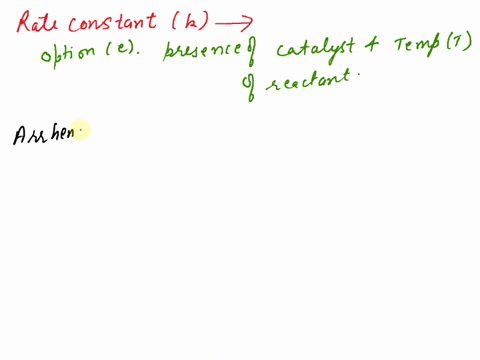 Rate constant (k) ⟶
option (e). presence of catalyst + Temp (T)
of reactant.
Arrhen